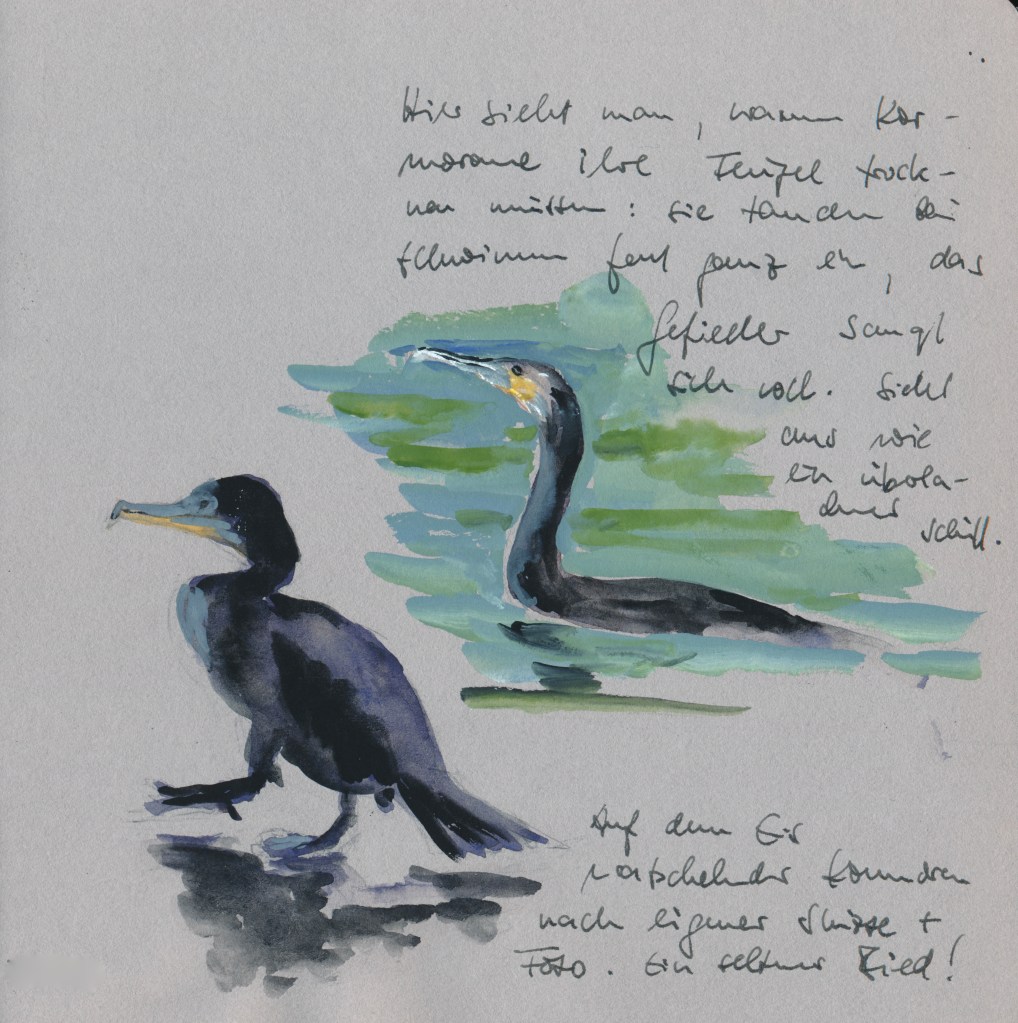 Hier sieht man, warum Kor-
morane ihre Flügel trock-
nen müssen: sie tauchen bei
schwimmen fast ganz ein, das
Gefieder saugt
sich voll. Sieht
aus wie
ein überla-
denes
Schiff.
Auf dem Eis
watschelnder Kormoran
nach eigener Skizze +
Foto. Ein seltenes